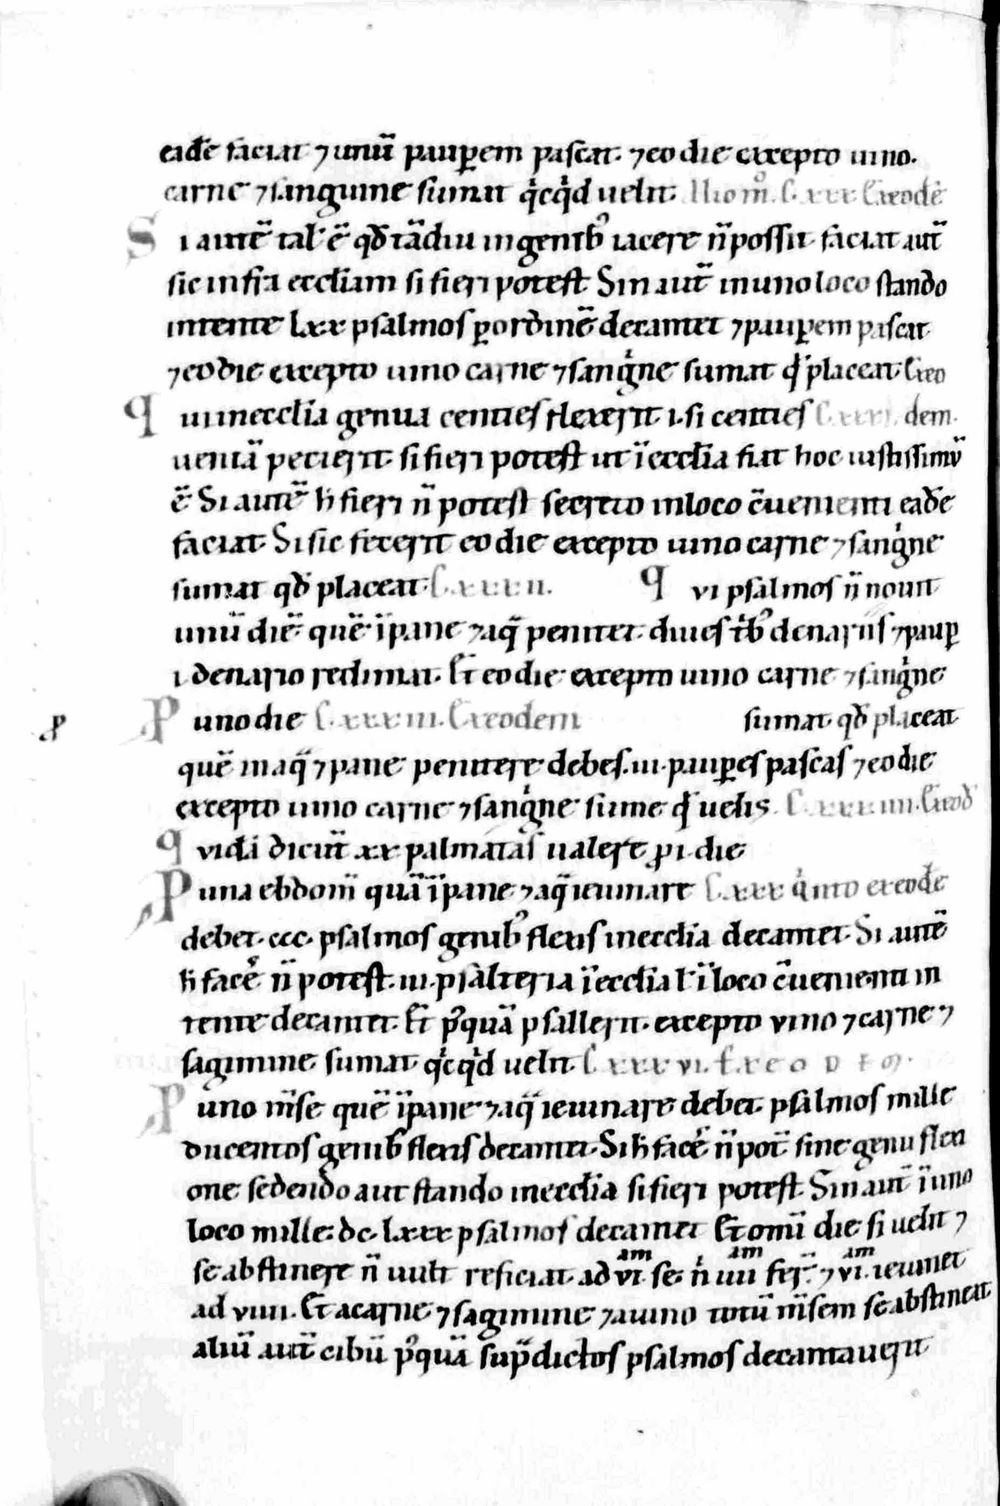 eadē faciat ⁊ unū paup̄em pascat. ⁊ eo die excepto uino.
carne ⁊ sanguine sumat q̇cq̇d uelit. C.xxx. Ex eodē
Si autē tal' ē qđ tādiu in genib; iacere n̄ possit. faciat aūt
sic infra eccliam si fieri potest Sin aūt in uno loco stando
intente lxx psalmos p ordinē decantet ⁊ paup̄em pascat
⁊ eo die excepto uino carne ⁊ sang̍ne sumat qđ placeat. Ex eo
Qui in ecclīa genua centies flexerit .i. si centies C.xxxi. dem.
ueniā petierit. si fieri potest ut ī ecclīa fiat hoc iustissimū
ē Si autē h̄ fieri n̄ potest secreto in loco c̄uenienti eadē
faciat. Si sic fecerit eo die excepto uino carne ⁊ sang̍ne
sumat qđ placeat. C.xxxii. Qvi psalmos n̄ nouit
unū diē quē ī pane ⁊ aq̄ penitet. diues trib; denariis ⁊ paup̄
.i. denario redimat. Et eo die excepto uino carne ⁊ sang̍ne
P uno die C.xxxiii. Ex eodem sumat qđ placeat
quē in aq̄ ⁊ pane penitere debes. iii. paup̄es pascas ⁊ eo die
excepto uino carne ⁊ sang̍ne sume qđ uelis. C.xxxiiii. Ex eođ
Quidā dicūt xx palmatas ualere ꝓ .i. die
P una ebdom̄ quā ī pane ⁊ aq̄ ieiunare C.xxx q̍nto ex eodē
debet. ccc. psalmos genib; flexis in ecclia decantet. Si autē
h̄ facē n̄ potest. iii. psalteria ī ecclia l' ī loco c̄uenienti in
tente decantet. Et p̓quā psallerit. excepto vino ⁊ carne ⁊
sagimine sumat q̇cq̇d uelit. C.xxxvi. Ex eodem.
P uno m̄se quē ī pane ⁊ aq̄ ieiunare debet. psalmos mille
ducentos genib; flexis decantet. Si h̄ facē n̄ pot̄ sine genu flexi
one sedendo aut stando in ecclīa si fieri potest. Sin aūt ī uno
loco mille. dc. lxxx psalmos decantet Et omī die si uelit ⁊
se abstinere n̄ uult reficiat ad vi.am se. n̍ iiii.am fer̄. ⁊ vi.am ieiunet
ad viiii. Et a carne ⁊ sagimine ⁊ a uino totū m̄sem se abstineat
aliū aūt cibū p̓quā sup̄dictos psalmos decantauerit